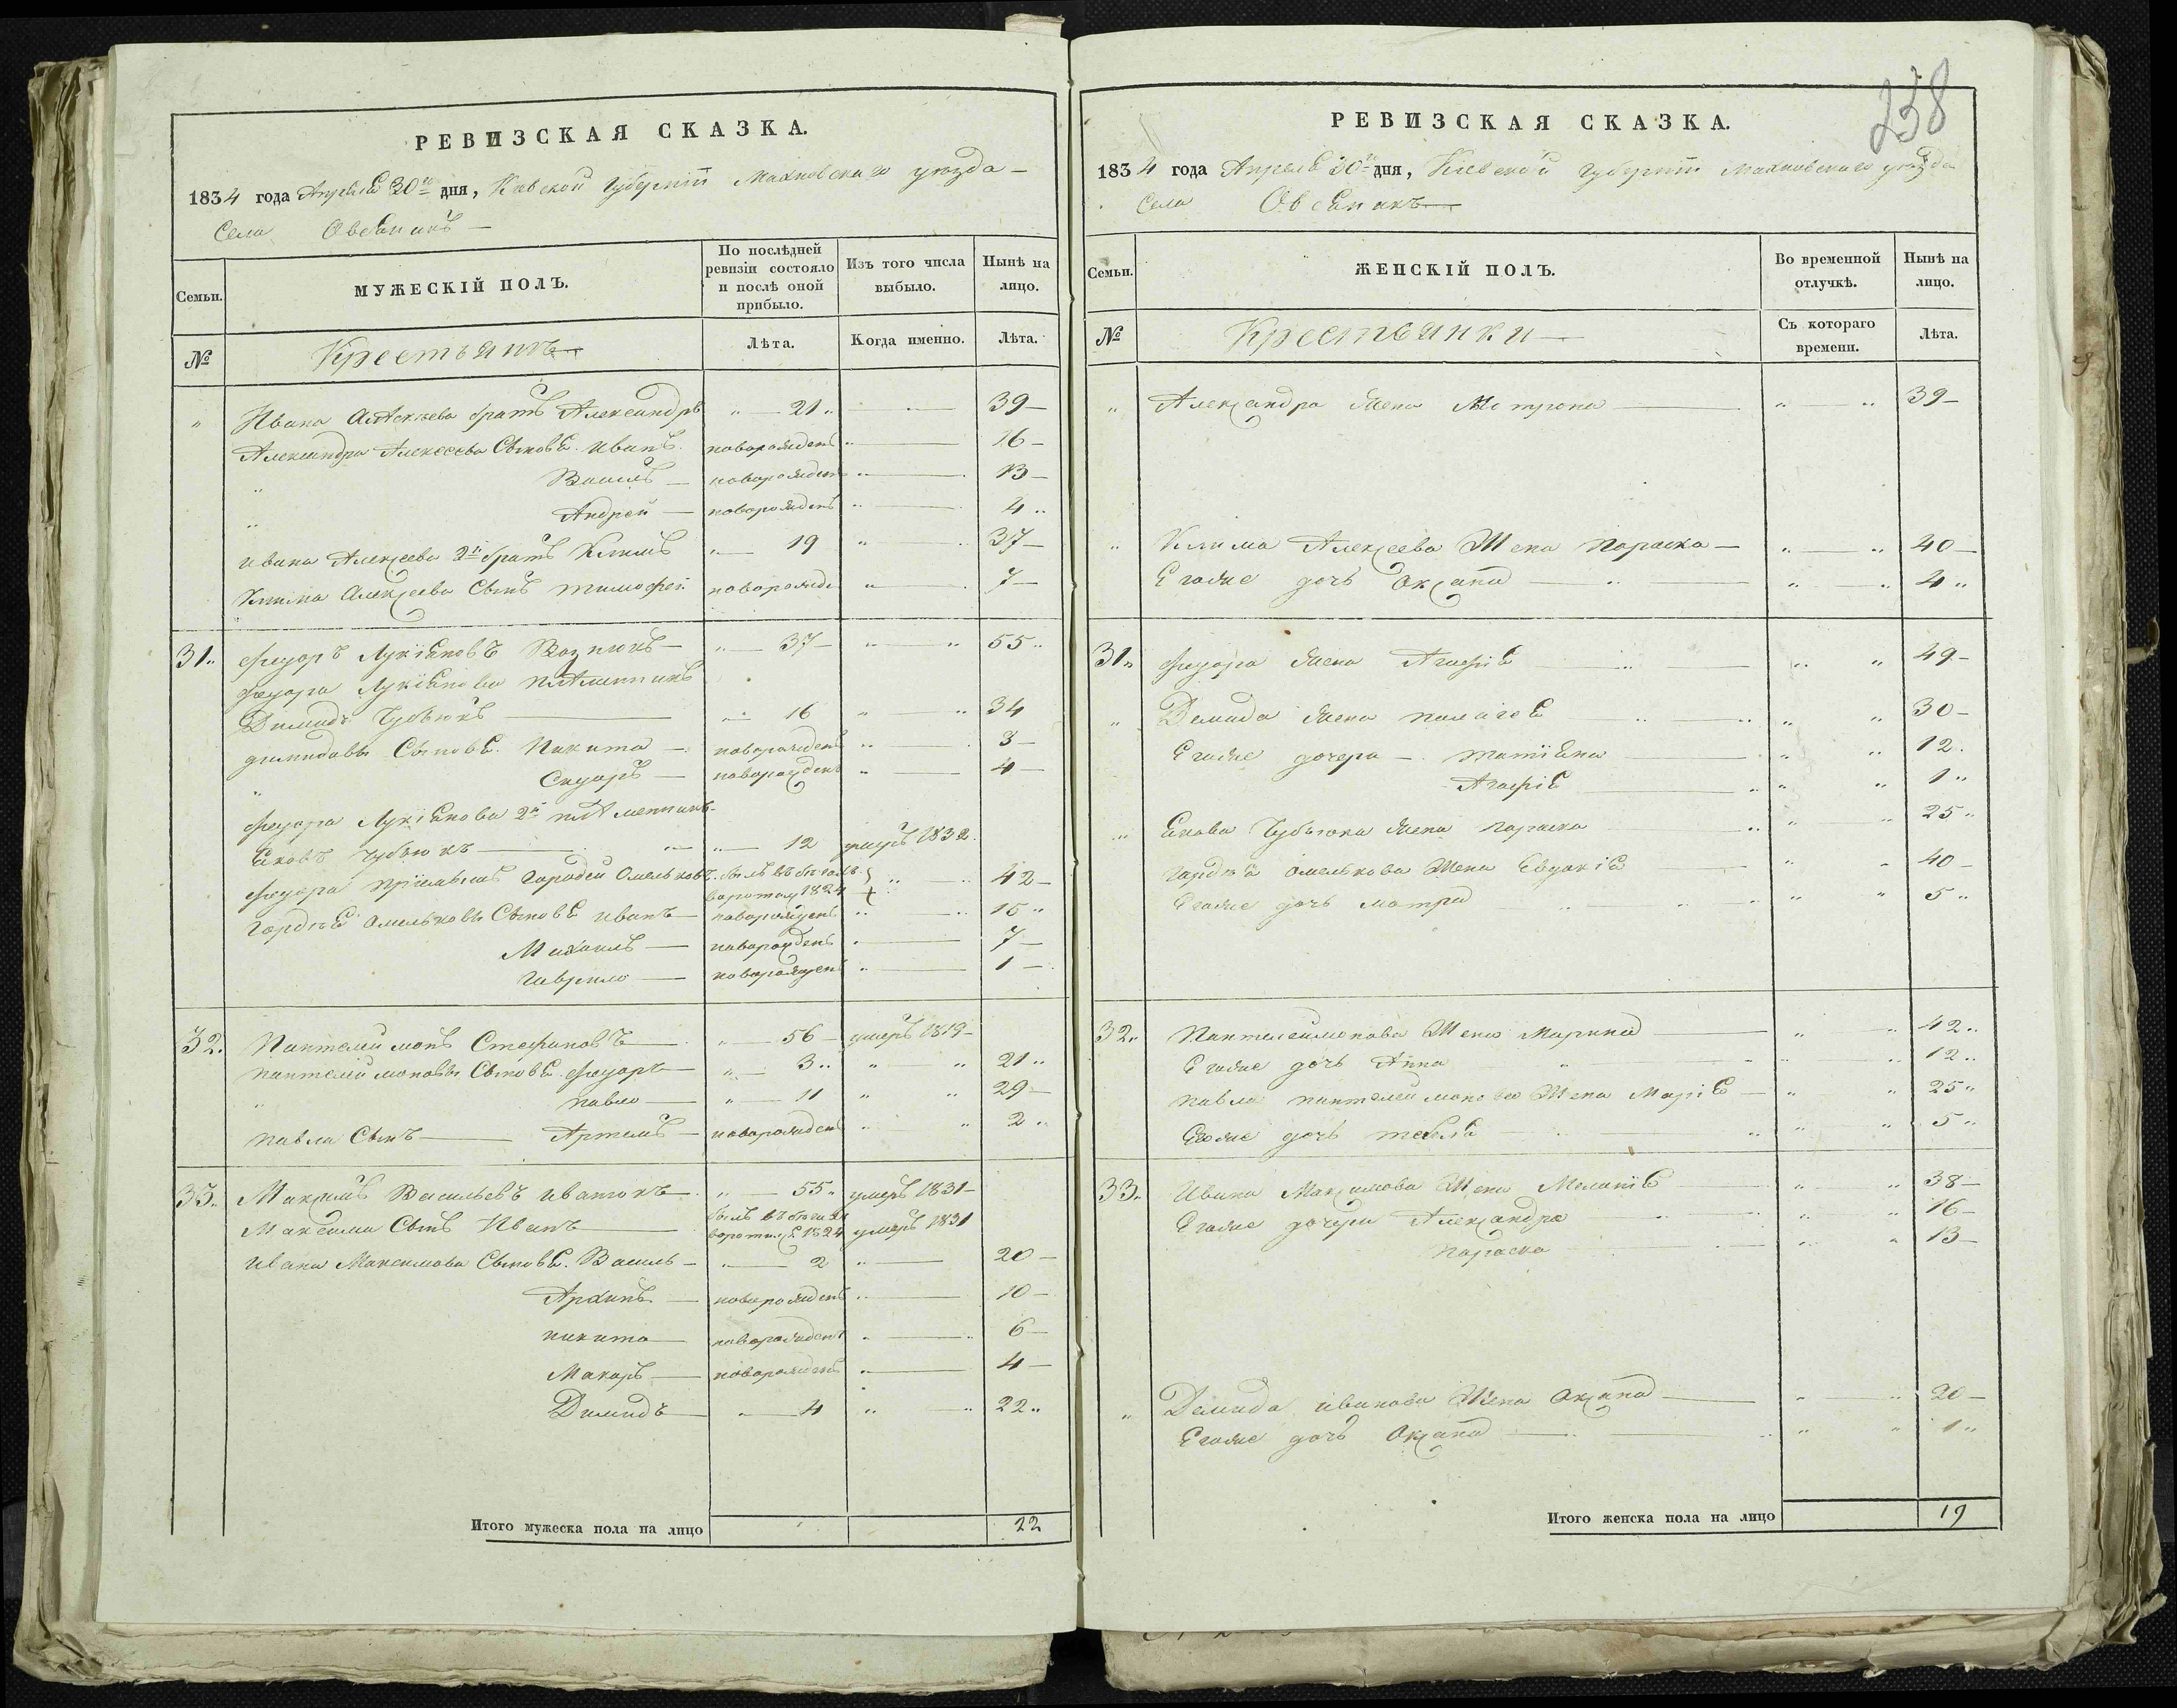 РЕВИЗСКАЯ СКАЗКА.
1834 года Апреля 30го дня, Киевской Губернiи Махновскаго уезда
Села Овсяникъ
Семьи.
МУЖЕСКIЙ ПОЛЪ.
По послѣдней ревизiи состояло и послѣ оной прибыло.
Изъ того числа выбыло.
Нынѣ на лицо.
№
Крестьянъ
Лѣта.
Когда именно.
Лѣта.
" Ивана Алексѣева братъ Александръ " 21 " 39
Александра Алексеева Сыновя Иванъ новорожденъ " 16
" Василь новорожденъ " 13
" Андрей новорожденъ " 4
Ивана Алексеева 2й братъ Климъ " 19 " 37
Клима Алексеева Сынъ тимофей новорожде " 7
31. Федоръ Лукiяновъ 37 " " 55
Федора Лукiянова плѣменникъ
Димидъ Чубъюкъ " 16 " " 34
димидовы Сыновя Никита новорожденъ " 3
" Сидоръ новорожденъ " 4
Федора Лукiянова 2й плѣменникъ
Яковъ Чубьюкъ " 12 умеръ 1832
Федора Прiемышъ Гордей Омельковъ былъ въ бегахъ воротил 1824 " 42
Гордѣя Омелькова Сыновя иванъ новорожденъ " 15
Михаилъ новорожденъ " 7
Гаврило новорожденъ " 1
32. Пантелеймонъ Стефановъ " 56 умеръ 1819
пантелеймоновы Сыновя Федоръ " 3 " " 21
" павло " 11 " " 29
павла Сынъ Артемъ новорожденъ " " 2
33. Максимъ Васильевъ иванюкъ " 55 умеръ 1831
Максима Сынъ Иванъ былъ въ бегахъ воротился 1824 умеръ 1831
Ивана Максимова Сыновя Василь " 2 " 20
Архипъ новорожденъ " 10
никита новорожденъ " 6
Макаръ новорожденъ " 4
Димидъ " 4 " " 22
Итого мужеска пола на лицо 22
238
РЕВИЗСКАЯ СКАЗКА.
1834 года Апреля 30го дня, Кiевской Губернiи Махновскаго уезда
Села Овсяникъ
Семьи.
ЖЕНСКIЙ ПОЛЪ.
Во временной отлучкѣ.
Нынѣ на лицо.
№
Крестьянки
Съ котораго времени.
Лѣта.
" Александра жена Мотрона " " 39
" Клима Алексеева Жена параска " " 40
Егоже дочь Оксана " " 4
31. Федора жена Агафiя " " 49
" Демида жена пелагея " " 30
Егоже дочери татiяна " " 12
Агафiя " " 1
" Якова Чубьюка жена параска " " 25
Гордѣя Омелькова Жена Евдокiя " " 40
Егоже дочь мотря " " 5
32. Пантелеймонова Жена Марина " " 42
Егоже дочь Анна " " 12
павла пантелеймонова Жена Марiя " " 25
Егоже дочь текля " " 5
33. Ивана Максимова Жена Меланiя " " 38
Егоже дочери Александра " " 16
параска " " 13
" Демида иванова Жена Оксана " " 20
Егоже дочь Оксана " " 1
Итого женска пола на лицо 19